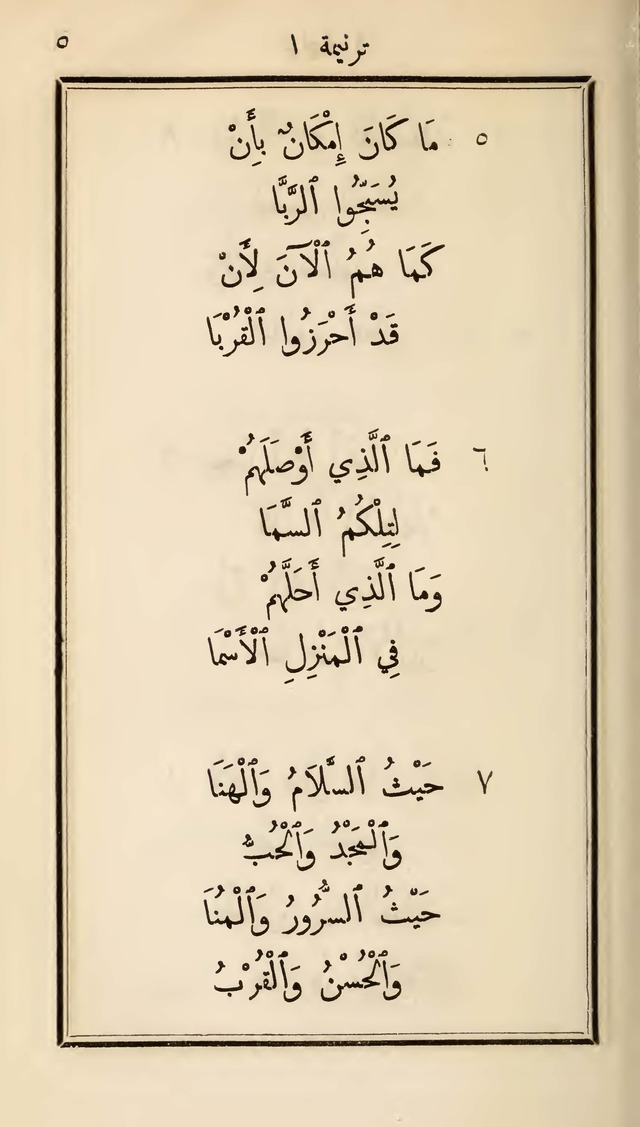 ترنيمة ١ ٥
٥ مَا كَانَ إِمْكَانٌ بِأَنْ
يُسَبِّحُوا ٱلرَّبَّا
كَمَا هُمُ ٱلْآنَ لِأَنْ
قَدْ أَحْرَزُوا ٱلْقُرْبَا
٦ فَمَا ٱلَّذِي أَوْصَلَهُمْ
لِتِلْكُمُ ٱلسَّمَا
وَمَا ٱلَّذِي أَحَلَّهُمْ
فِي ٱلْمَنْزِلِ ٱلْأَسْمَا
٧ حَيْثُ ٱلسَّلَامُ وَٱلْهَنَا
وَٱلْمَجْدُ وَٱلْحُبُّ
حَيْثُ ٱلسُّرُورُ وَٱلْمُنَا
وَٱلْحُسْنُ وَٱلْقُرْبُ